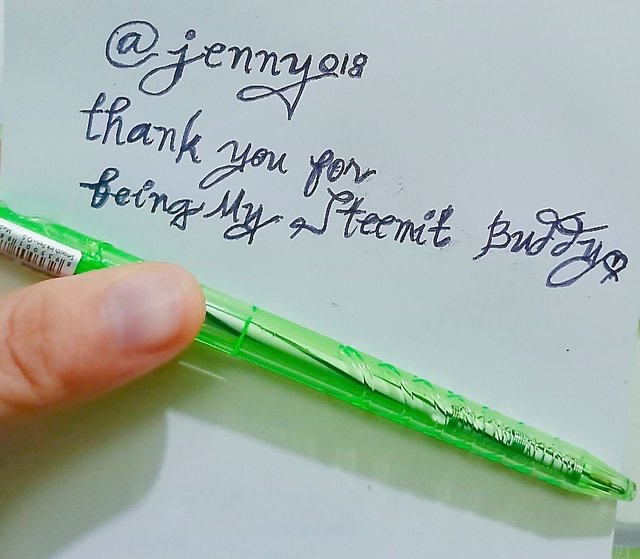 @jenny018
thank you for
being My Steemit Buddy